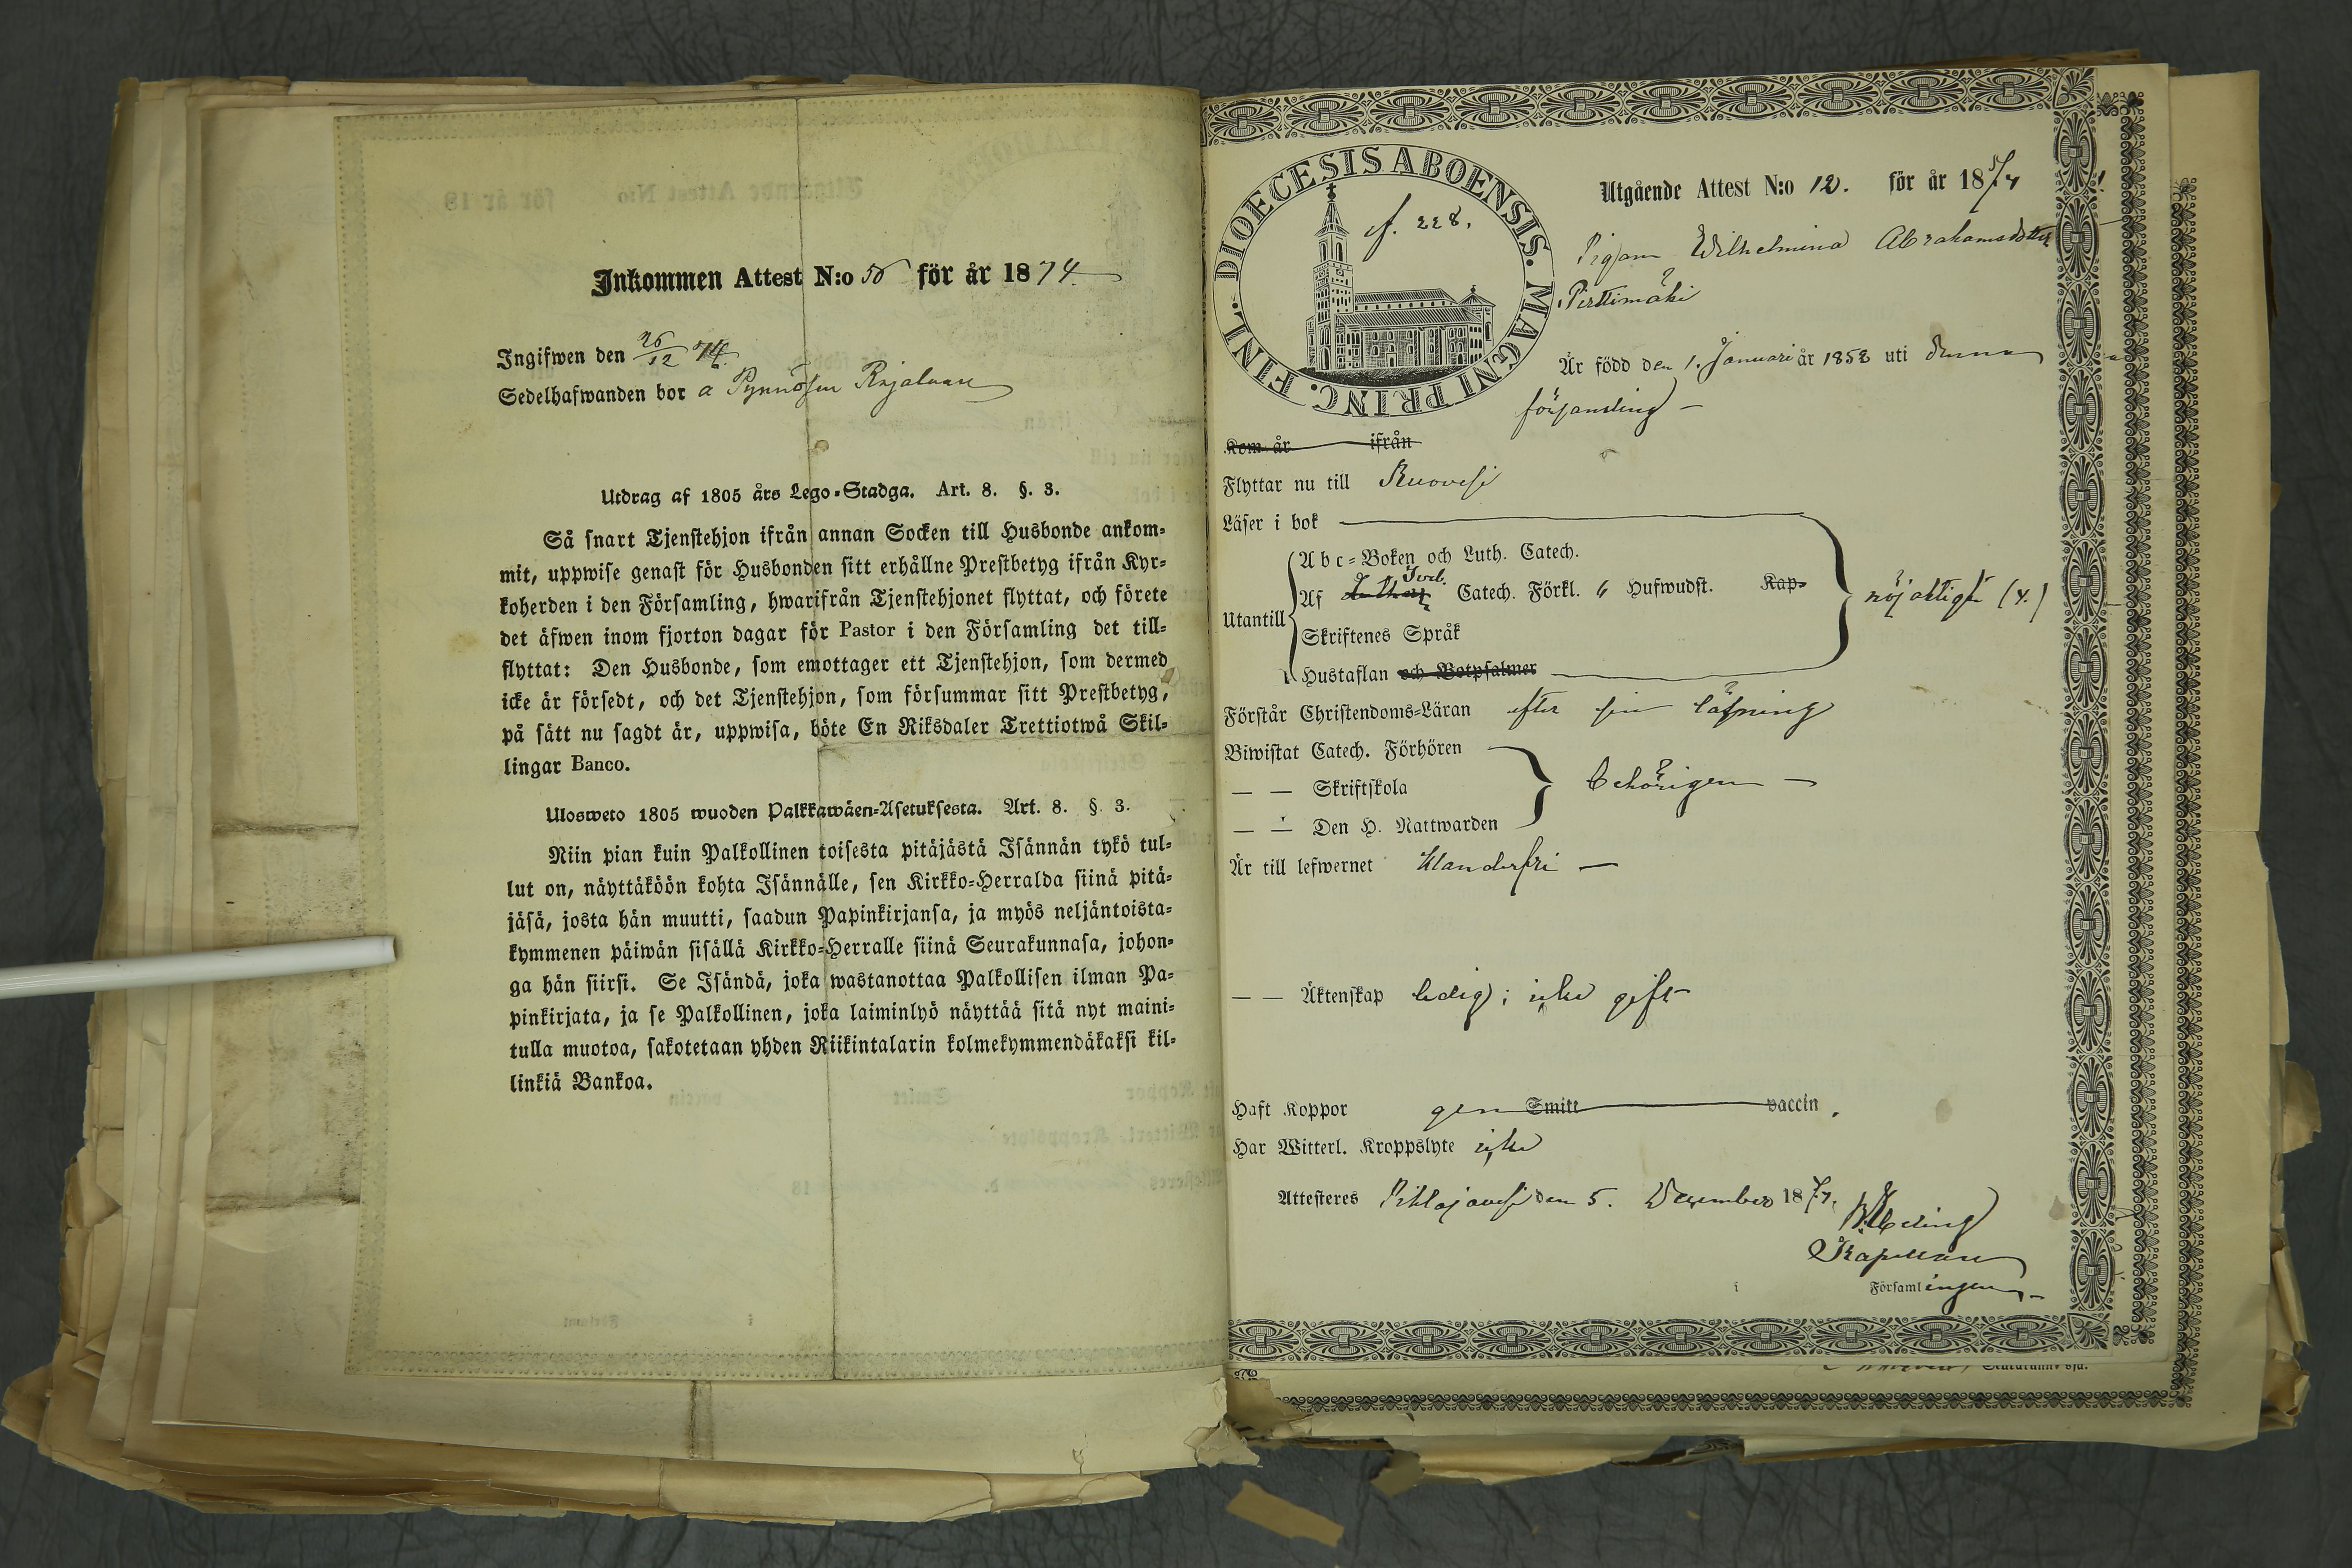 Inkommen Attest N:o 50 för år 1874.
Ingifwen den 26/12 74.
Sedelhafwanden bor a Pynnösen Rajalaan
Utdrag af 1805 års Lego-Stadga. Art. 8. §. 3.
Så snart Tjenstehjon ifrån annan Socken till Husbonde ankom-
mit, uppwise genast för Husbonden sitt erhållne Prestbetyg ifrån Kyr-
koherden i den Församling, hwarifrån Tjenstehjonet flyttat, och förete
det äfwen inom fjorton dagar för Pastor i den Församling det till-
flyttat: Den Husbonde, som emottager ett Tjenstehjon, som dermed
icke är försedt, och det Tjenstehjon, som försummar sitt Prestbetyg,
på sätt nu sagdt är, uppwisa, böte En Riksdaler Trettiotwå Skil-
lingar Banco.
Ulosweto 1805 wuoden Palkkawäen-Asetuksesta. Art. 8. §. 3.
Niin pian kuin Palkollinen toisesta pitäjästä Isännän tykö tul-
lut on, näyttäköön kohta Isännälle, sen Kirkko-Herralda siinä pitä-
jäsä, josta hän muutti, saadun Papinkirjansa, ja myös neljäntoista-
kymmenen päiwän sisällä Kirkko-Herralle siinä Seurakunnasa, johon-
ga hän siirsi. Se Isändä, joka wastanottaa Palkollisen ilman Pa-
pinkirjata, ja se Palkollinen, joka laiminlyö näyttää sitä nyt maini-
tulla muotoa, sakotetaan yhden Riikintalarin kolmekymmendäkaksi kil-
linkiä Bankoa.
DIOECESIS ABOENSIS. MAGNI PRINC. FINL.
f. 228.
Utgående Attest N:o 12. för år 1874
Pigan Wilhelmina Abrahamsdotter
Pirttimäki
Är född den 1. Januari år 1852 uti denna
församling –
Kom år ifrån
Flyttar nu till Ruovesi
Läser i bok
Abc-Boken och Luth. Catech.
Utantill Af Luthers Svel. Catech. Förkl. 6 Hufwudst. Kap-
Skriftenes Språk
Hustaflan och Botpsalmer
nöjaktigt (4.)
Förstår Christendoms-Läran efter sin läsning
Biwistat Catech. Förhören
— — Skriftskola behörigen –
— — Den H. Nattwarden
Är till lefwernet klanderfri –
— — Äktenskap ledig; icke gift
Haft Koppor gen Smitt vaccin.
Har Witterl. Kroppslyte icke
Attesteres Pihlajavesi den 5. December 1874.
Kapellan
i Församlingen